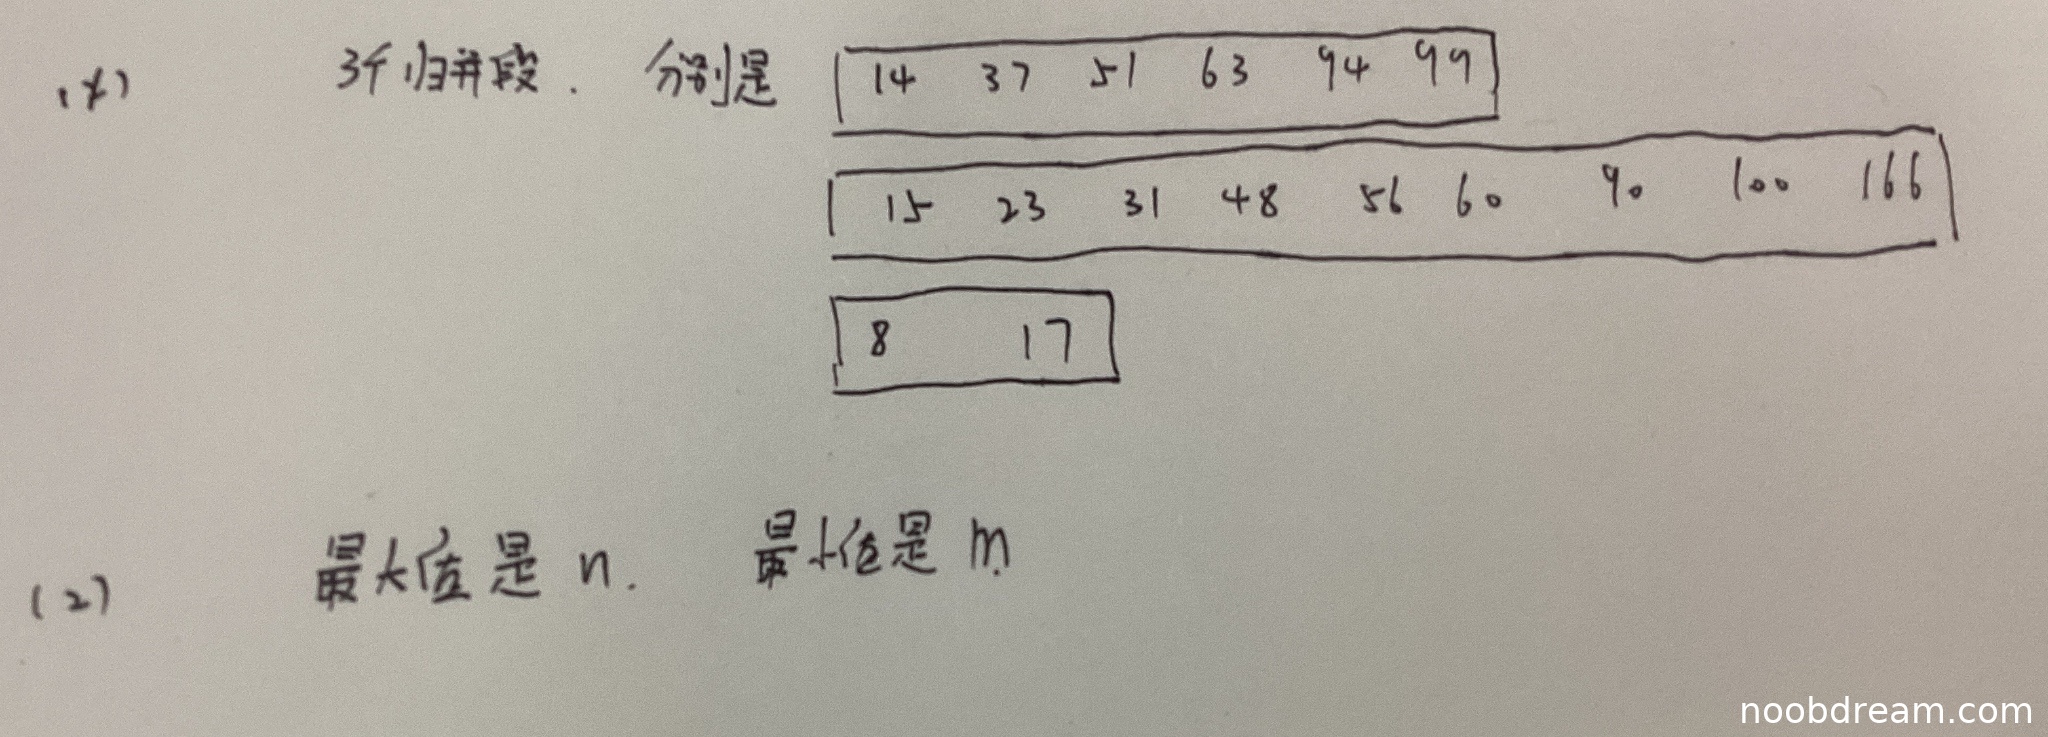 (1) 3个归并段. 分别是 14 37 51 63 94 99
15 23 31 48 56 60 90 100 166
8 17
(2) 最大值是 n. 最小值是 m
noobdream.com